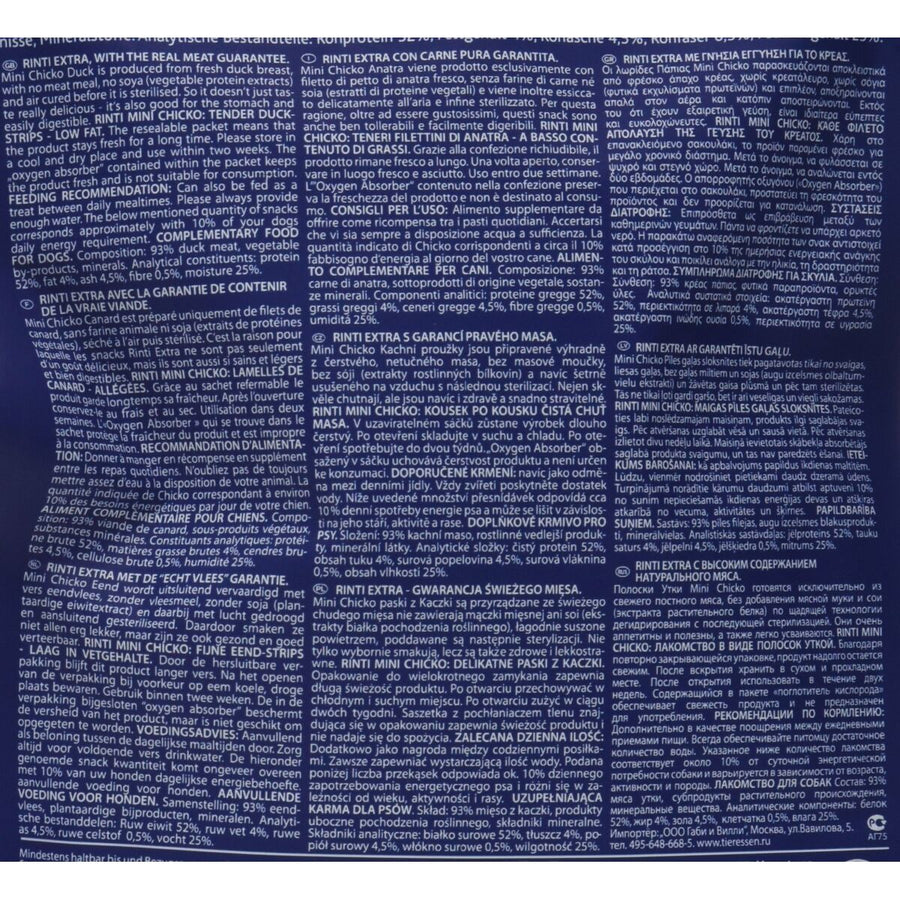 nisse, Mineralstoffe. Analytische Bestandteile: Rohprotein 52%,
GB RINTI EXTRA, WITH THE REAL MEAT GUARANTEE.
Mini Chicko Duck is produced from fresh duck breast,
with no meat meal, no soya (vegetable protein extracts)
and air cured before it is sterilised. So it doesn't just tas-
te really delicious - it's also good for the stomach and
easily digestible. RINTI MINI CHICKO: TENDER DUCK-
STRIPS - LOW FAT. The resealable packet means that
the product stays fresh for a long time. Please store in
a cool and dry place and use within two weeks. The
„oxygen absorber" contained within the packet keeps
the product fresh and is not suitable for consumption.
FEEDING RECOMMENDATION: Can also be fed as a
treat between daily mealtimes. Please always provide
enough water. The below mentioned quantity of snacks
corresponds approximately with 10% of your dogs
daily energy requirement. COMPLEMENTARY FOOD
FOR DOGS. Composition: 93% duck meat, vegetable
by-products, minerals. Analytical constituents: protein
52%, fat 4%, ash 4,5%, fibre 0,5%, moisture 25%.
F RINTI EXTRA AVEC LA GARANTIE DE CONTENIR
DE LA VRAIE VIANDE.
Mini Chicko Canard est préparé uniquement de filets de
canard, sans farine animale ni soja (extraits de protéines
végétales), séché à l'air puis stérilisé. C'est la raison pour
laquelle les snacks Rinti Extra ne sont pas seulement
d'un goût délicieux, mais ils sont aussi si sains et légers
et bien digestibles. RINTI MINI CHICKO: LAMELLES DE
CANARD - ALLÉGÉES. Grâce au sachet refermable le
produit garde longtemps sa fraîcheur. Après l'ouverture
conservez-le au frais et au sec. Utilisation dans deux
semaines. L'«Oxygen Absorber» qui se trouve dans le
sachet protège la fraîcheur du produit et est impropre
à la consommation. RECOMMANDATION D'ALIMENTA-
TION: Donner à manger en récompense en supplément
entre les repas quotidiens. N'oubliez pas de toujours
mettre assez d'eau à la disposition de votre animal. La
quantité indiquée de Chicko correspondant à environ
10% des besoins énergétiques par jour de votre chien.
ALIMENT COMPLÉMENTAIRE POUR CHIENS. Compo-
sition: 93% viande de canard, sous-produits végétaux
substances minerales. Constituants analytiques: protéi-
ne brute 52%, matières grasse brutes 4%, cendres bru-
tes 4,5%, cellulose brute 0,5%, humidité 25%.
NL RINTI EXTRA MET DE "ECHT VLEES" GARANTIE.
Mini Chicko Eend wordt uitsluitend vervaardigd met
vers eendvlees, zonder vleesmeel, zonder soja (plan-
taardige eiwitextract) en daarbij met lucht gedroogd
en aansluitend gesteriliseerd. Daardoor smaken ze
niet allen erg lekker, maar zijn ze ook gezond en goed
verteerbaar. RINTI MINI CHICKO: FIJNE EEND-STRIPS
- LAAG IN VETGEHALTE. Door de hersluitbare ver-
pakking blijft dit product langer vers. Na het openen
van de verpakking bij voorkeur op een koele, droge
plaats bewaren. Gebruik binnen twee weken. De in de
verpakking bijgesloten "oxygen absorber" beschermt
de versheid van het product, maar is niet geschikt om
opgegeten te worden. VOEDINGSADVIES: Aanvullend
als beloning tussen de dagelijkse maaltijden door. Zorg
altijd voor voldoende vers drinkwater. De hieronder
genoemde snack kwantiteit komt ongeveer overeen
met 10% van uw honden dagelijkse energiebehoefte.
aanvullende voeding voor honden. AANVULLENDE
VOEDING VOOR HONDEN. Samenstelling: 93% eend-
vlees, plantaardige bijproducten, mineralen. Analyti-
sche bestanddelen: Ruw eiwit 52%, ruw vet 4%, ruwe
as 4,5%, ruwe celstof 0,5%, vocht 25%.
Mindestens haltbar bis und
I RINTI EXTRA CON CARNE PURA GARANTITA.
Mini Chicko Anatra viene prodotto esclusivamente con
filetto di petto di anatra fresco, senza farine di carne né
soia (estratti di proteine vegetali) e viene inoltre essicca-
to delicatamente all'aria e infine sterilizzato. Per questa
ragione, oltre ad essere gustosissimi, questi snack sono
anche ben tollerabili e facilmente digeribili. RINTI MINI
CHICKO: TENERI FILETTINI DI ANATRA - A BASSO CON-
TENUTO DI GRASSI. Grazie alla confezione richiudibile, il
prodotto rimane fresco a lungo. Una volta aperto, conser-
vare in luogo fresco e asciutto. Uso entro due settimane.
L'"Oxygen Absorber" contenuto nella confezione preser-
va la freschezza del prodotto e non è destinato al consu-
mo. CONSIGLI PER L'USO: Alimento supplementare da
offrire come ricompensa tra i pasti quotidiani. Accertarsi
che vi sia sempre a disposizione acqua a sufficienza. La
quantità indicato di Chicko corrispondenti a circa il 10%
fabbisogno d'energia al giorno del vostro cane. ALIMEN-
TO COMPLEMENTARE PER CANI. Composizione: 93%
carne di anatra, sottoprodotti di origine vegetale, sostan-
ze minerali. Componenti analitici: proteine gregge 52%,
grassi greggi 4%, ceneri gregge 4,5%, fibre gregge 0,5%,
umidità 25%.
CZ RINTI EXTRA S GARANCÍ PRAVÉHO MASA.
Mini Chicko Kachní proužky jsou připravené výhradně
z čerstvého, netučného masa, bez masové moučky,
bez sóji (extrakty rostlinných bílkovin) a navíc šetrně
usušeného na vzduchu s následnou sterilizací. Nejen sk-
věle chutnají, ale jsou navíc i zdravé a snadno stravitelné.
RINTI MINI CHICKO: KOUSEK PO KOUSKU ČISTÁ CHUŤ
MASA. V uzaviratelném sáčků zůstane výrobek dlouho
čerstvý. Po otevření skladujte v suchu a chladu. Po ote-
vření spotřebujte do dvou týdnů. „Oxygen Absorber" ob-
sažený v sáčku uchovává čerstvost produktu a není určen
ke konzumaci. DOPORUČENÉ KRMENÍ: navíc jako odmě-
na mezi denními jídly. Vždy zvířeti poskytněte dostatek
vody. Níže uvedené množství přesnídávek odpovídá cca
10% denní spotřeby energie psa a může se lišit v závislos-
ti na jeho stáří, aktivitě a rase. DOPLŇKOVÉ KRMIVO PRO
PSY. Složení: 93% kachní maso, rostlinné vedlejší produk-
ty, minerální látky. Analytické složky: čistý protein 52%,
obsah tuku 4%, surová popelovina 4,5%, surová vláknina
0,5%, obsah vlhkosti 25%.
PL RINTI EXTRA - GWARANCJA ŚWIEŻEGO MIĘSA.
Mini Chicko paski z Kaczki są przyrządzane ze świeżego
chudego mięsa nie zawierają mączki mięsnej ani soi (eks-
trakty białka pochodzenia roślinnego), łagodnie suszone
powietrzem, poddawane są następnie sterylizacji. Nie
tylko wybornie smakują, lecz są także zdrowe i lekkostra-
wne. RINTI MINI CHICKO: DELIKATNE PASKI Z KACZKI.
Opakowanie do wielokrotnego zamykania zapewnia
długą świeżość produktu. Po otwarciu przechowywać w
chłodnym i suchym miejscu. Po otwarciu zużyć w ciągu
dwóch tygodni. Saszetka z pochłaniaczem tlenu znaj-
dująca sie w opakowaniu zapewnia świeżość produktu i
nie nadaje się do spożycia. ZALECANA DZIENNA ILOŚĆ:
Dodatkowo jako nagroda między codziennymi posiłka-
mi. Zawsze zapewniać wystarczającą ilość wody. Podana
poniżej liczba przekąsek odpowiada ok. 10% dziennego
zapotrzebowania energetycznego psa i różni się w za-
leżności od wieku, aktywności i rasy. UZUPEŁNIAJĄCA
KARMA DLA PSÓW. Skład: 93% mięso z kaczki, produkty
uboczne pochodzenia roślinnego, składniki mineralne.
Składniki analityczne: białko surowe 52%, tłuszcz 4%, po-
piół surowy 4,5%, włókno surowe 0,5%, wilgotność 25%.
GR RINTI EXTRA ΜΕ ΓΝΗΣΙΑ ΕΓΓΥΗΣΗ ΓΙΑ ΤΟ ΚΡΕΑΣ.
Οι λωρίδες Πάπιας Mini Chicko παρασκευάζονται αποκλειστικά
από φρέσκο άπαχο κρέας, χωρίς κρεατάλευρο, χωρίς σόγια
(φυτικά εκχυλίσματα πρωτεϊνών) και επιπλέον, αποξηραίνονται
απαλά στον αέρα και κατόπιν αποστειρώνονται. Εκτός
του ότι έχουν εξαιρετική γεύση, είναι ιδιαίτερα εύπεπτες
και ευκολοχώνευτες. RINTI MINI CHICKO: ΚΑΘΕ ΦΙΛΕΤΟ
ΑΠΟΛΑΥΣΗ ΤΗΣ ΓΕΥΣΗΣ ΤΟΥ ΚΡΕΑΤΟΣ. Χάρη στο
επανακλειόμενο σακουλάκι, το προϊόν παραμένει φρέσκο για
μεγάλο χρονικό διάστημα. Μετά το άνοιγμα, να φυλάσσεται σε
ψυχρό και στεγνό χώρο. Μετά το άνοιγμα, να αναλώνεται εντός
δύο εβδομάδες. Ο απορροφητής οξυγόνου («Oxygen Absorber»)
που περιέχεται στο σακουλάκι, προστατεύει τη φρεσκότητα του
προϊόντος και δεν προορίζεται για κατανάλωση. ΣΥΣΤΑΣΕΙΣ
ΔΙΑΤΡΟΦΗΣ: Επιπρόσθετα ως επιβράβευση μεταξύ των
καθημερινών γευμάτων. Πάντα να φροντίζετε να υπάρχει αρκετό
νερό. Η παρακάτω αναφερόμενη ποσότητα των σνακ αντιστοιχεί
κατά προσέγγιση στο 10% της ημερησίας ενεργειακής ανάγκης
του σκύλου και ποικίλει ανάλογα με την ηλικία, τη δραστηριότητα
και τη ράτσα. ΣΥΜΠΛΗΡΩΜΑ ΔΙΑΤΡΟΦΗΣ ΓΙΑ ΣΚΥΛΙΑ. Σύνθεση:
Σύνθεση: 93% κρέας πάπιας, φυτικά παραπροϊόντα, ορυκτές
ύλες. Αναλυτικά συστατικά στοιχεία: ακατέργαστη πρωτεΐνη
52%, περιεκτικότητα σε λιπαρά 4%, ακατέργαστη τέφρα 4,5%,
ακατέργαστη ινώδης ουσία 0,5%, περιεκτικότητα σε υγρασία
25%.
LV RINTI EXTRA AR GARANTĒTI ĪSTU GAĻU.
Mini Chicko Pīles gaļas sloksnītes tiek pagatavotas tikai no svaigas,
liesas gaļas, bez gaļas miltiem un sojas (augu izcelsmes olbaltum-
vielu ekstrakti) un žāvētas gaisa plūsmā un pēc tam sterilizētas.
Tās ne tikai ļoti gardi garšo, bet ir arī veselīgas un viegli sakožamas.
RINTI MINI CHICKO: MAIGAS PĪLES GAĻAS SLOKSNĪTES. Pateico-
ties labi noslēdzamajam maisiņam, produkts ilgi saglabājas sva-
igs. Pēc atvēršanas uzglabāt vēsā un sausā vietā. Pēc atvēršanas
izlietot divu nedēļu laikā. Maisiņā ievietotais skābekļa absorbētājs
saglabā produkta svaigumu, un tas nav paredzēts ēšanai. IETEI-
KUMS BAROŠANAI: kā apbalvojums papildus ikdienas maltītēm.
Lūdzu, vienmēr nodrošiniet pietiekami daudz dzeramā ūdens.
Turpinājumā norādītie kārumu daudzumi atbilst aptuveni 10%
no sunim nepieciešamās ikdienas enerģijas devas un atšķiras
atkarībā no vecuma, aktivitātes un šķirnes. PAPILDBARĪBA
SUŅIEM. Sastāvs: 93% pīles filejas, augu izcelsmes blakusproduk-
ti, minerālvielas. Analistiskās sastāvdaļas: jēlproteīns 52%, tauku
saturs 4%, jēlpelni 4,5%, jēlšķiedra 0,5%, mitrums 25%.
RUS RINTI EXTRA С ВЫСОКИМ СОДЕРЖАНИЕМ
НАТУРАЛЬНОГО МЯСА.
Полоски Утки Mini Chicko готовятся исключительно из
свежего постного мяса, без добавления мясной муки и сои
(экстракта растительного белка) по щадящей технологии
дегидрирования с последующей стерилизацией. Они очень
аппетитны и полезны, а также легко усваиваются. RINTI MINI
CHICKO: ЛАКОМСТВО В ВИДЕ ПОЛОСОК УТКОЙ. Благодаря
повторно закрывающейся упаковке, продукт надолго остается
свежим. После вскрытия хранить в сухом и прохладном
месте. После открытия использовать в течение двух
недель. Содержащийся в пакете "поглотитель кислорода"
обеспечивает свежесть продукта и не предназначен
для употребления. РЕКОМЕНДАЦИИ ПО КОРМЛЕНИЮ:
Дополнительно в качестве поощрения между ежедневными
приемами пищи. Всегда обеспечивайте питомцу достаточное
количество воды. Указанное ниже количество лакомства
соответствует около 10% от суточной энергетической
потребности собаки и варьируется в зависимости от возраста,
активности и породы. ЛАКОМСТВО ДЛЯ СОБАК Состав: 93%
мяса утки, субпродукты растительного происхождения,
минеральные вещества. Аналитические компоненты: белок
52%, жир 4%, зола 4,5%, клетчатка 0,5%, влага 25%.
Импортёр: „ООО Габи и Вилли", Москва, ул.Вавилова, 5.
тел. 495-648-668-5. www.tieressen.ru
АГ75